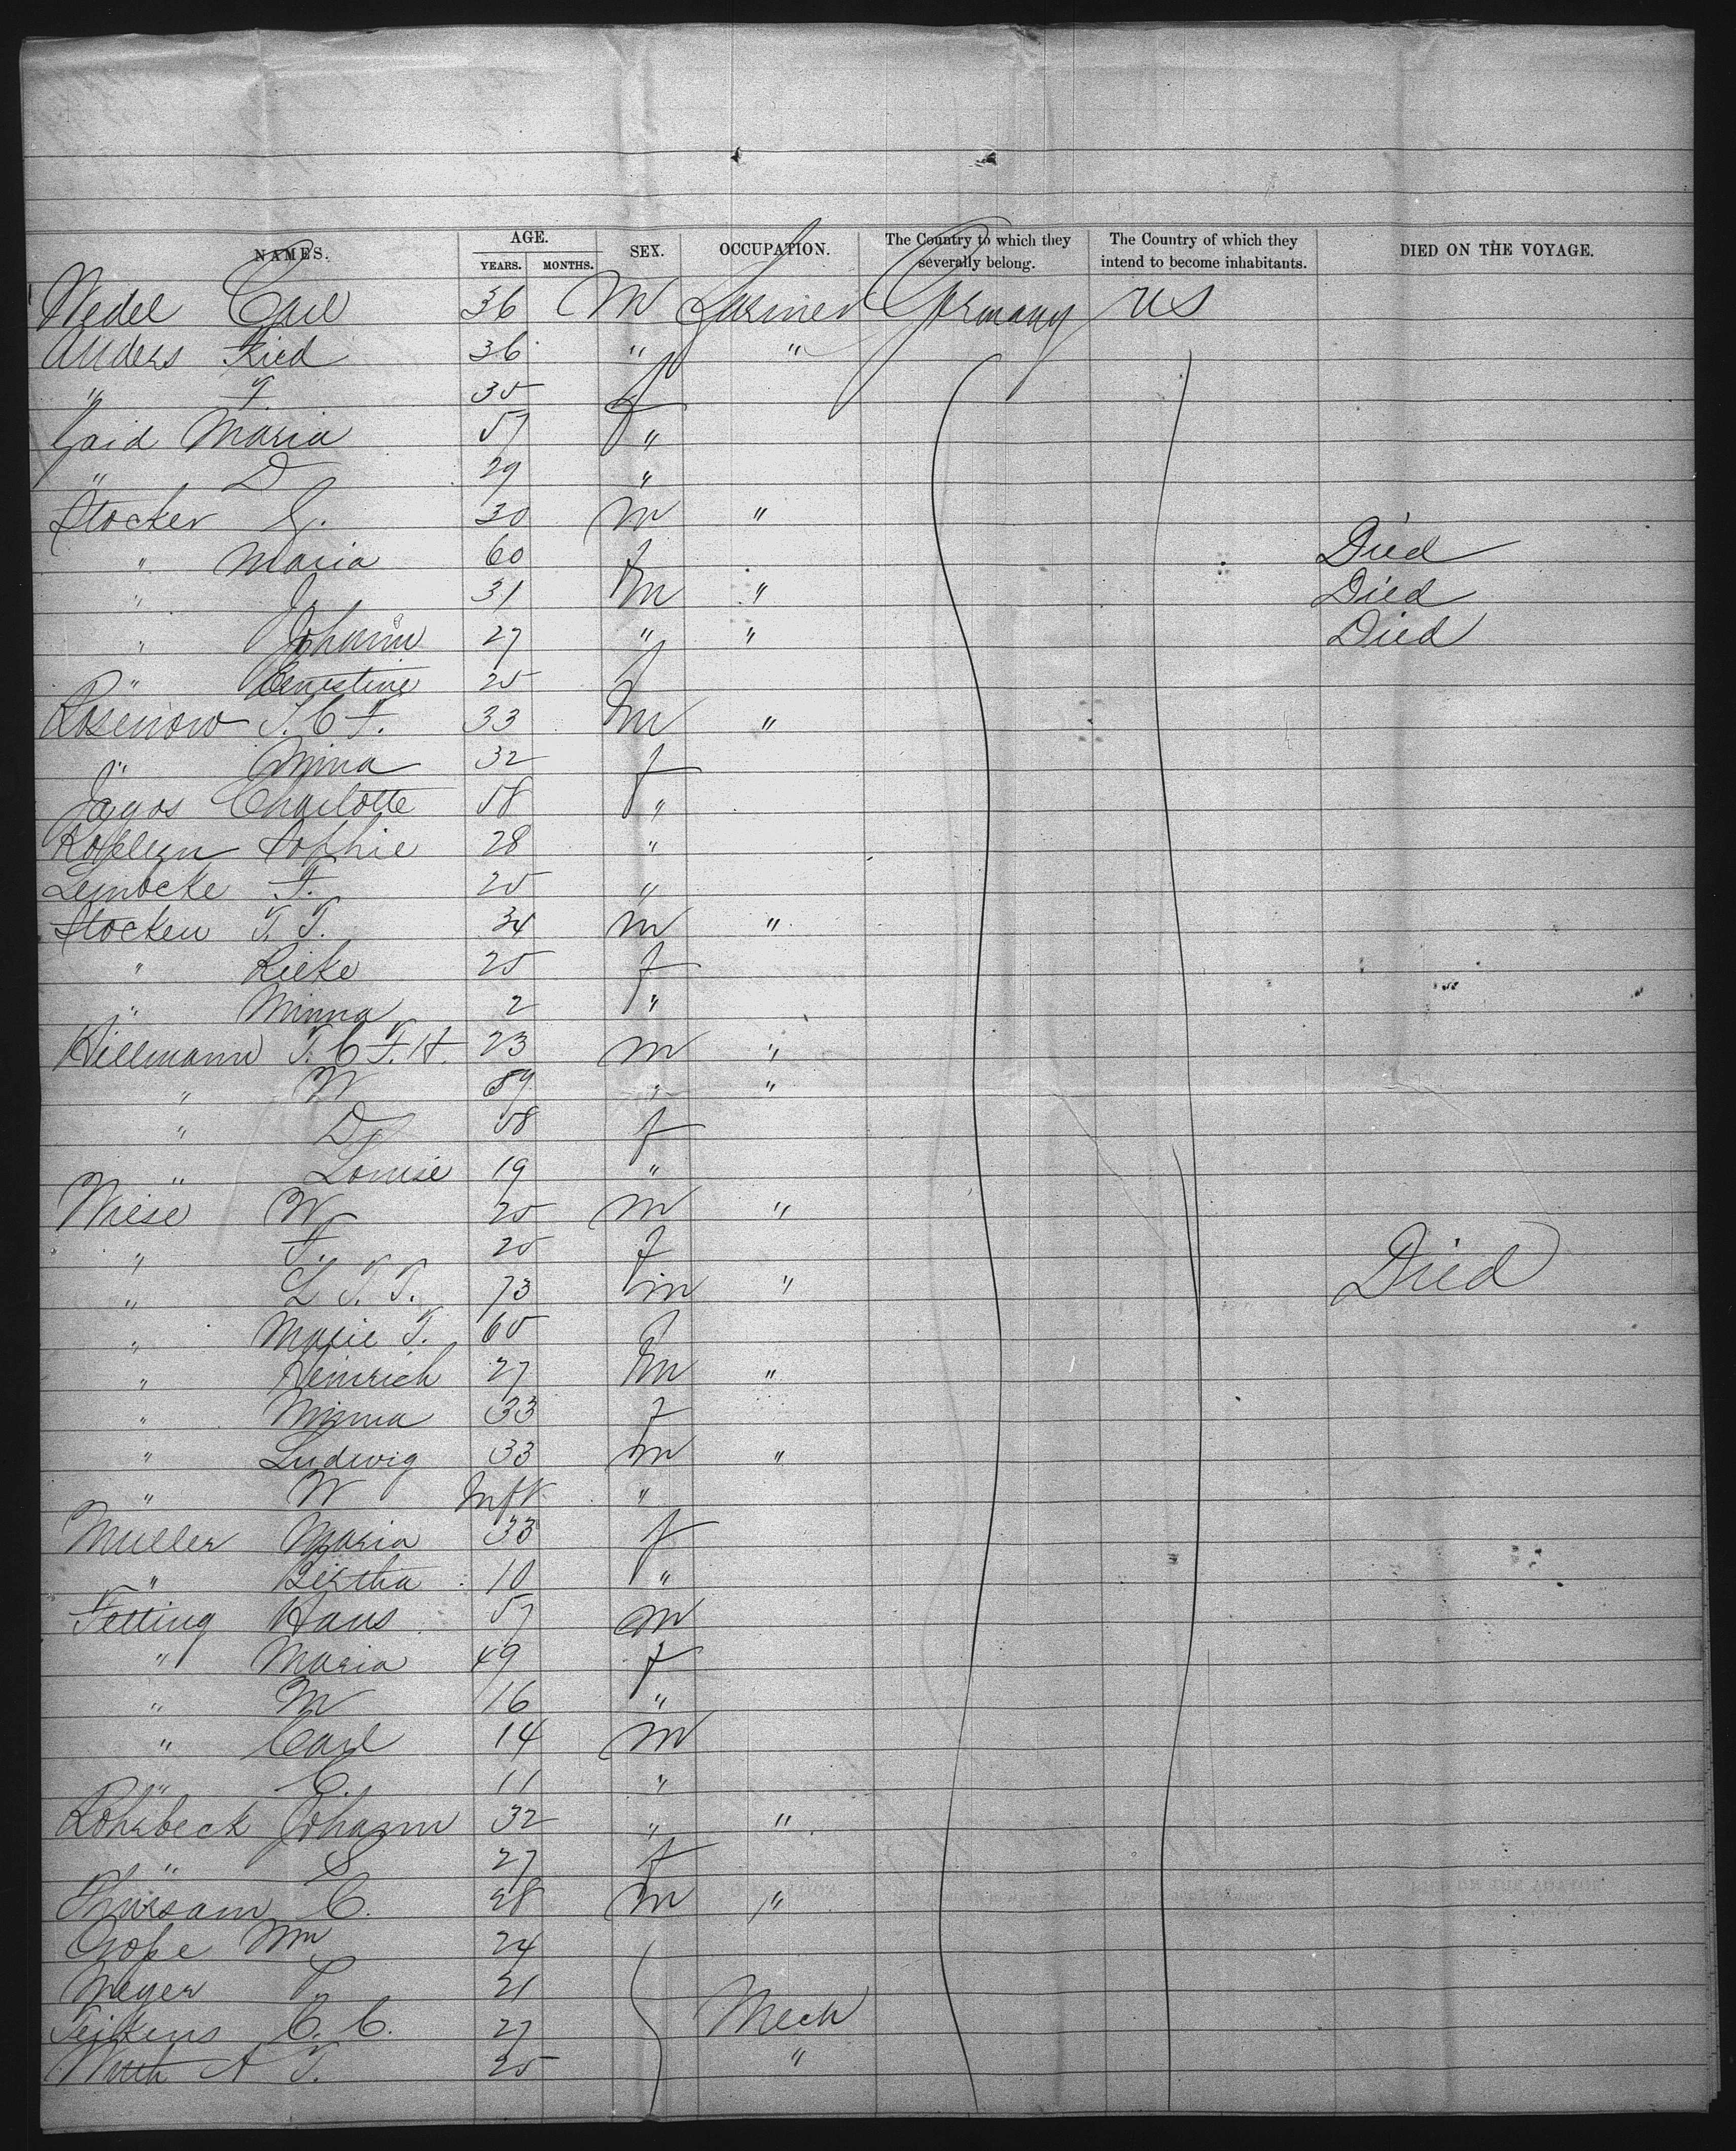 NAMES. AGE. SEX. OCCUPATION. The Country to which they severally belong. The Country of which they intend to become inhabitants. DIED ON THE VOYAGE.
YEARS. MONTHS.
Wedel Carl 36 M Farmer Germany US
Anders Fried 36 " "
" F. 35 f
Gaid Maria 57 "
" D 29 "
Stocker G. 30 m "
" Maria 60 f Died
" J 31 m " Died
" Johann 27 " " Died
" Ernestine 25 f
Rosenow T. C F. 33 m "
" Mina 32 f
Jagos Charlotte 58 "
Sophie 28 "
Lemocke F. 25 "
Stocken T. T. 34 m "
" Rieke 25 f
" Minna 2 "
Hillmann T. C F. H. 23 m "
" W 59 " "
" D 58 f
" Louise 19 "
Wiese W 25 m "
" F. 25 f
" L T. T. 73 m " Died
" Marie T. 65 f
" Heinrich 27 m "
" Minna 33 f
" Ludwig 33 m "
" W Inft "
Muller Maria 33 f
" Bertha 10 "
Fetting Hans 57 m
" Maria 49 f
" M 16 "
" Carl 14 m
" C. 11 "
Rohrbeck Johann 32 " "
" S 27 f
C. 28 m "
Wm 24
Meyer T. 21
C. C. 27 Mech
A T. 25 "